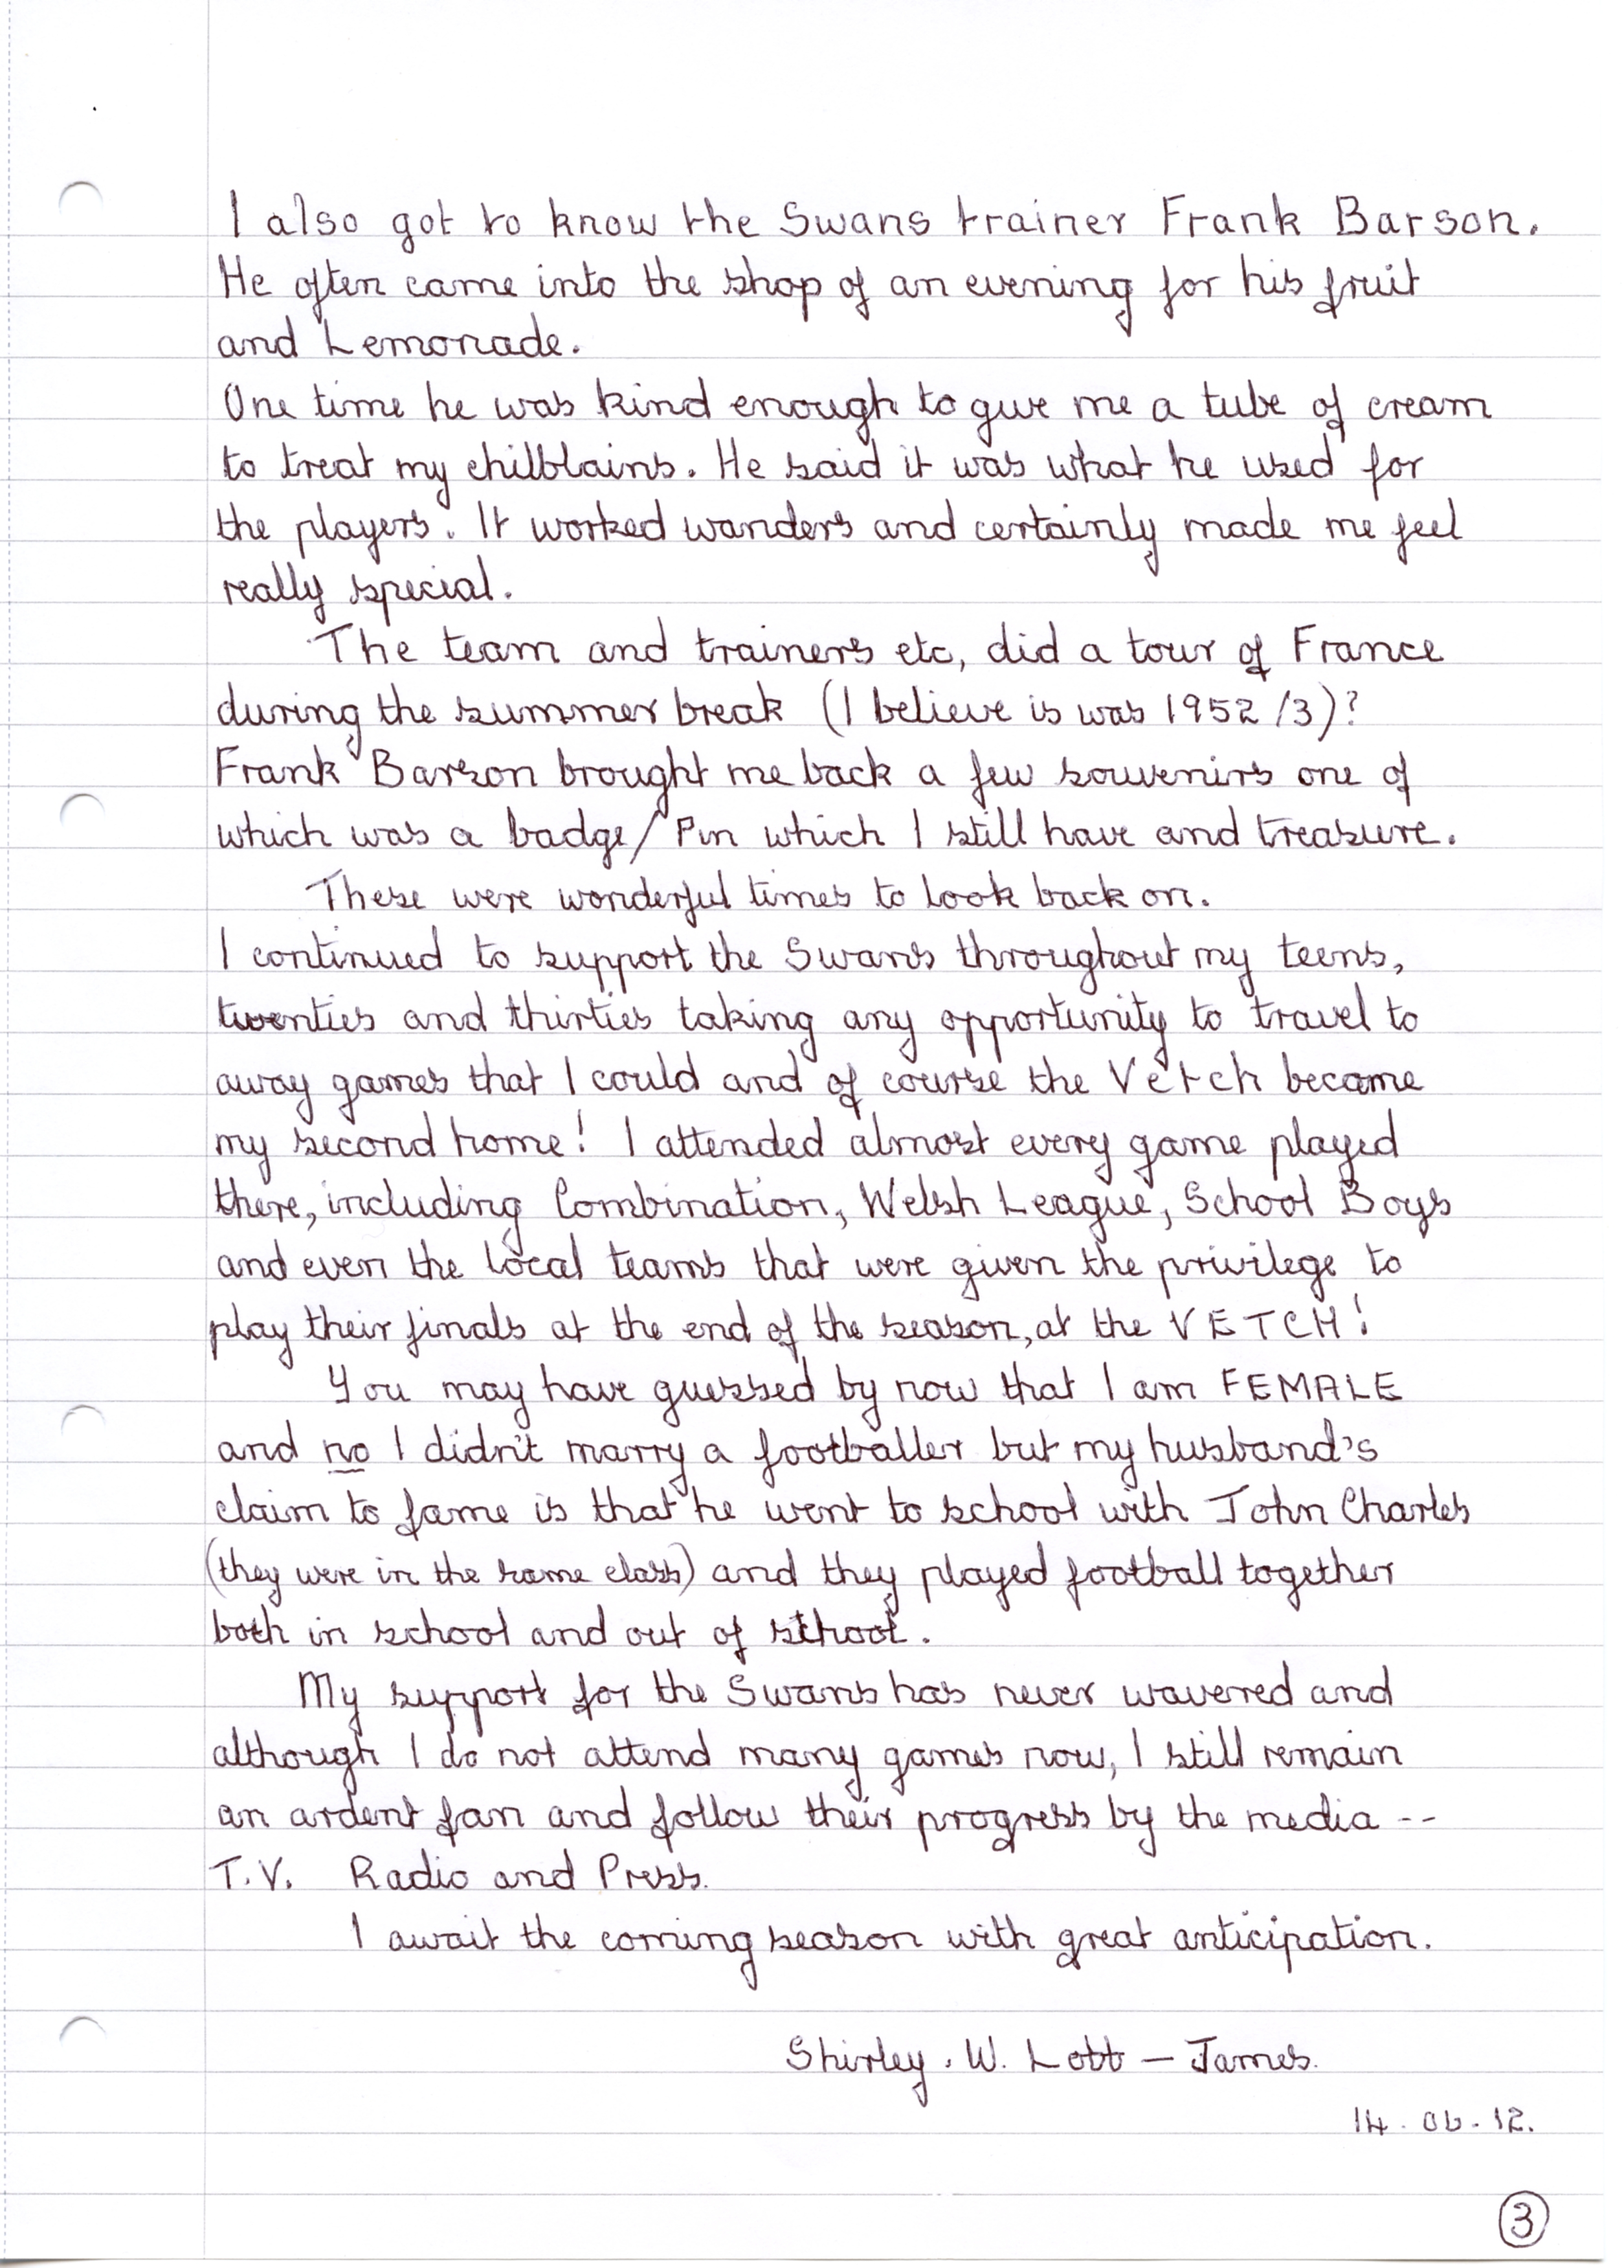 I also got to know the Swans trainer Frank Barson.
He often came into the shop of an evening for his fruit
and Lemonade.
One time he was kind enough to give me a tube of cream
to treat my chilblains. He said it was what he used for
the players. It worked wanders and certainly made me feel
really special.
The team and trainers etc, did a tour of France
during the summer break (I believe is was 1952/3)?
Frank Barson brought me back a few souvenirs one of
which was a badge/Pin which I still have and treasure.
These were wonderful times to look back on.
I continued to support the Swans throughout my teens,
twenties and thirties taking any opportunity to travel to
away games that I could and of course the Vetch became
my second home! I attended almost every game played
there, including Combination, Welsh League, School Boys
and even the local teams that were given the privilege to
play their finals at the end of the season, at the VETCH!
You may have guessed by now that I am FEMALE
and no I didn't marry a footballer but my husband's
claim to fame is that he went to school with John Charles
(they were in the same class) and they played football together
both in school and out of school.
My support for the Swans has never wavered and
although I do not attend many games now, I still remain
an ardent fan and follow their progress by the media --
T.V. Radio and Press.
I await the coming season with great anticipation.
Shirley. W. Lott - James.
14.06.12.
3